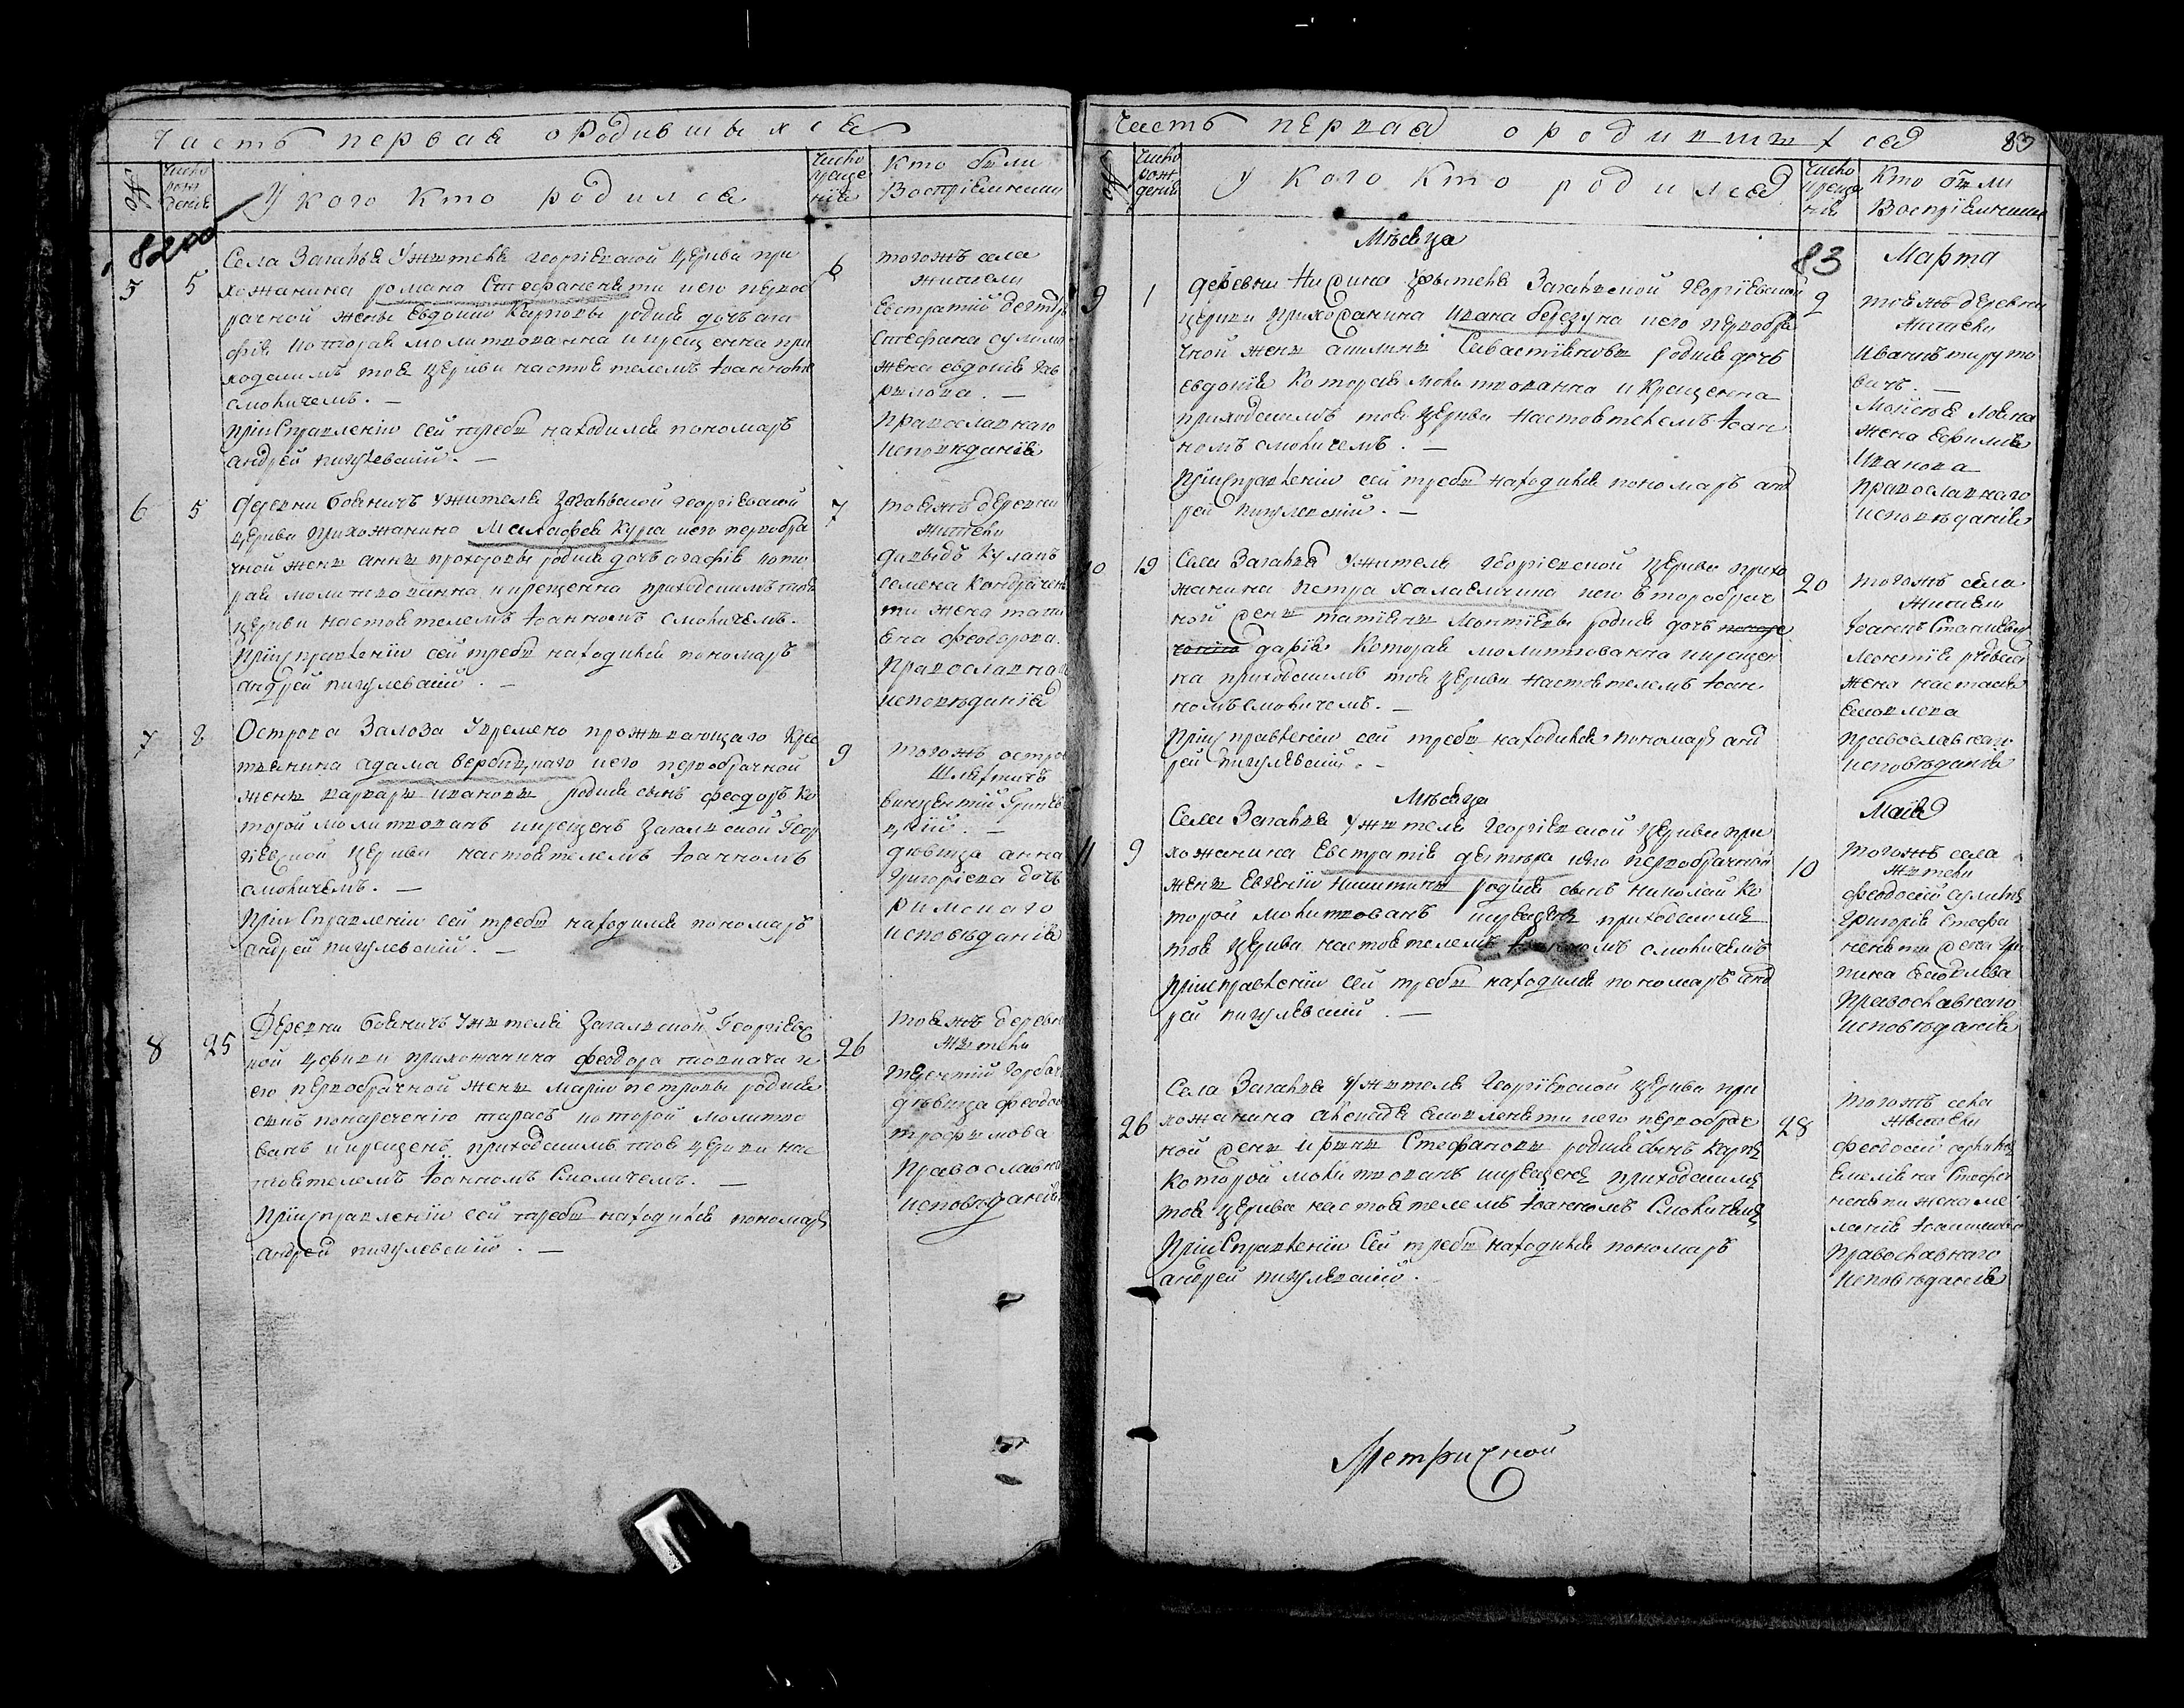 Часть первая о Родившыхся
№
Число рождения
У кого кто родился
Число крещения
Кто были Воспріемники
82
5
5
6
Села Загалья Ужителя Георгіевской Церкви при
хожанина романа Стефаненяти и его перво
рачной жены Евдокіи Карповы родися дочъ ага
фія которая молитвованна и крещенна при
ходскимъ тоя Церкви настоятелемъ Іоанномъ
смоличемъ. —
При Справленіи сей требы находился пономаръ
андрей пигулевскій. —
тогожъ села
жители
Евстратій
Стефана
жена евдокія гав
рилова. —
Православнаго
исповѣданія
6
5
7
Деревни бояничъ ужителя Загальской Георгіевской
церкви Прихожанина Малафея Кура и его первобра
чной жены анны прохоровы родися дочъ агафія кото
рая молитвованна и крещенна приходскимъ тоя
церкви настоятелемъ Іоанномъ смоличемъ. —
При справленіи сей требы находился пономаръ
андрей пигулевскій. —
тояжъ деревни
жители
давыдъ Куланъ
семена Кондрачен
ти жена тати
яна феодорова.
Православнаго
исповѣданія
7
8
9
Острова Залоза Увремено проживающаго Крес
тьянина адама вербицкаго и его первобрачной
жены варвары ивановы родися сынъ феодоръ Ко
торой молитвованъ и крещенъ Загальской Геор
гіевской Церкви настоятелемъ Іоанномъ
смоличемъ. —
При Справленіи сей требы находился пономаръ
андрей пигулевскій. —
тогожъ остро
Шляхтичъ
викентій Гринев
цкій. —
дѣвица анна
григоріева дочъ
римскаго
исповѣданія
8
25
26
Деревни бояничъ Ужителя Загальской Георгіевс
кой церкви прихожанина феодора толкача и
его первобрачной жены Маріи петровы родися
сынъ по нареченію тарасъ которой молитво
ванъ и крещенъ приходскимъ тоя церкви нас
тоятелемъ Іоанномъ Смоличемъ. —
При справленіи сей требы находился пономаръ
андрей пигулевскій. —
тояжъ деревни
жители
терентій Горбач
дѣвица феодо
трофимова
Православна
исповѣданія
Часть первая о родившихся
83
№
Число рожденія
У кого кто родился
Число крещенія
Кто были Воспріемники
Мѣсяца
83
Марта
9
1
2
деревни Нидина Ужителя Загальской Георгіевской
церкви прихожанина ивана березуна и его первобра
чной жены акилины Савастіяновы родися дочъ
евдокія Которая молитвованна и Крещенна
приходскимъ тоя Церкви настоятелемъ Іоан
номъ смоличемъ. —
При справленіи сей требы находился пономаръ анд
рей пигулевскій. —
тояжъ деревни
Жители
иванъ
вичъ. —
жена Ефимія
Иванова
православнаго
исповѣданія
10
19
20
Села Загалья Ужителя Георгіевской Церкви прихо
жанина петра халаемчика и его второбрач
ной жены татіяны Леонтіевы родися дочъ
дарія Которая молитвованна и крещен
на приходскимъ тоя Церкви настоятелемъ Іоан
номъ смоличемъ. —
При справленіи сей требы находился пономаръ анд
рей пигулевскій. —
тогожъ села
Жители
жена настасія
Яковлева
православнаго
исповѣданія
Мѣсяца
Маія
11
9
10
Села Загалья Ужителя Георгіевской Церкви при
хожанина Евстратія и его первобрачной
жены Евгеніи Никитины родися сынъ николай Ко
торой молитвованъ и крещенъ приходскимъ
тоя Церкви настоятелемъ Іоанномъ смоличемъ
При справленіи сей требы находился пономаръ анд
рей пигулевскій. —
тогожъ села
жители
феодосій
Григорія Стефа
неняти жена
Яковлева
Православнаго
исповѣданія
26
28
Села Загалья Ужителя Георгіевской Церкви при
хожанина алексія Яковленяти и его первобрач
ной жены ирины Стефановы родися сынъ Карпъ
Которой молитвованъ и крещенъ приходскимъ
тоя Церкви настоятелемъ Іоанномъ Смоличемъ
При Справленіи Сей требы находился пономаръ
андрей пигулевскій.
тогожъ села
жители
феодосій
Емеліяна Стефа
неняти жена ме
ланія
Православнаго
исповѣданія
Метрической